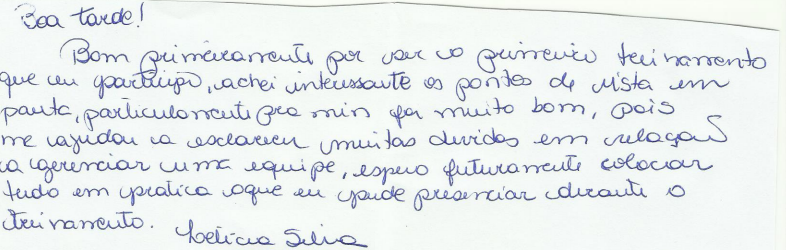 Boa tarde!
Bom primeiramente por ser o primeiro treinamento
que eu participo, achei interessante os pontos de vista em
pauta, particularmente pra min foi muito bom, pois
me ajudou a esclarecer muitas duvidas em relação
a gerenciar uma equipe, espero futuramente colocar
tudo em pratica oque eu pude presenciar durante o
treinamento.
Leticia Silva